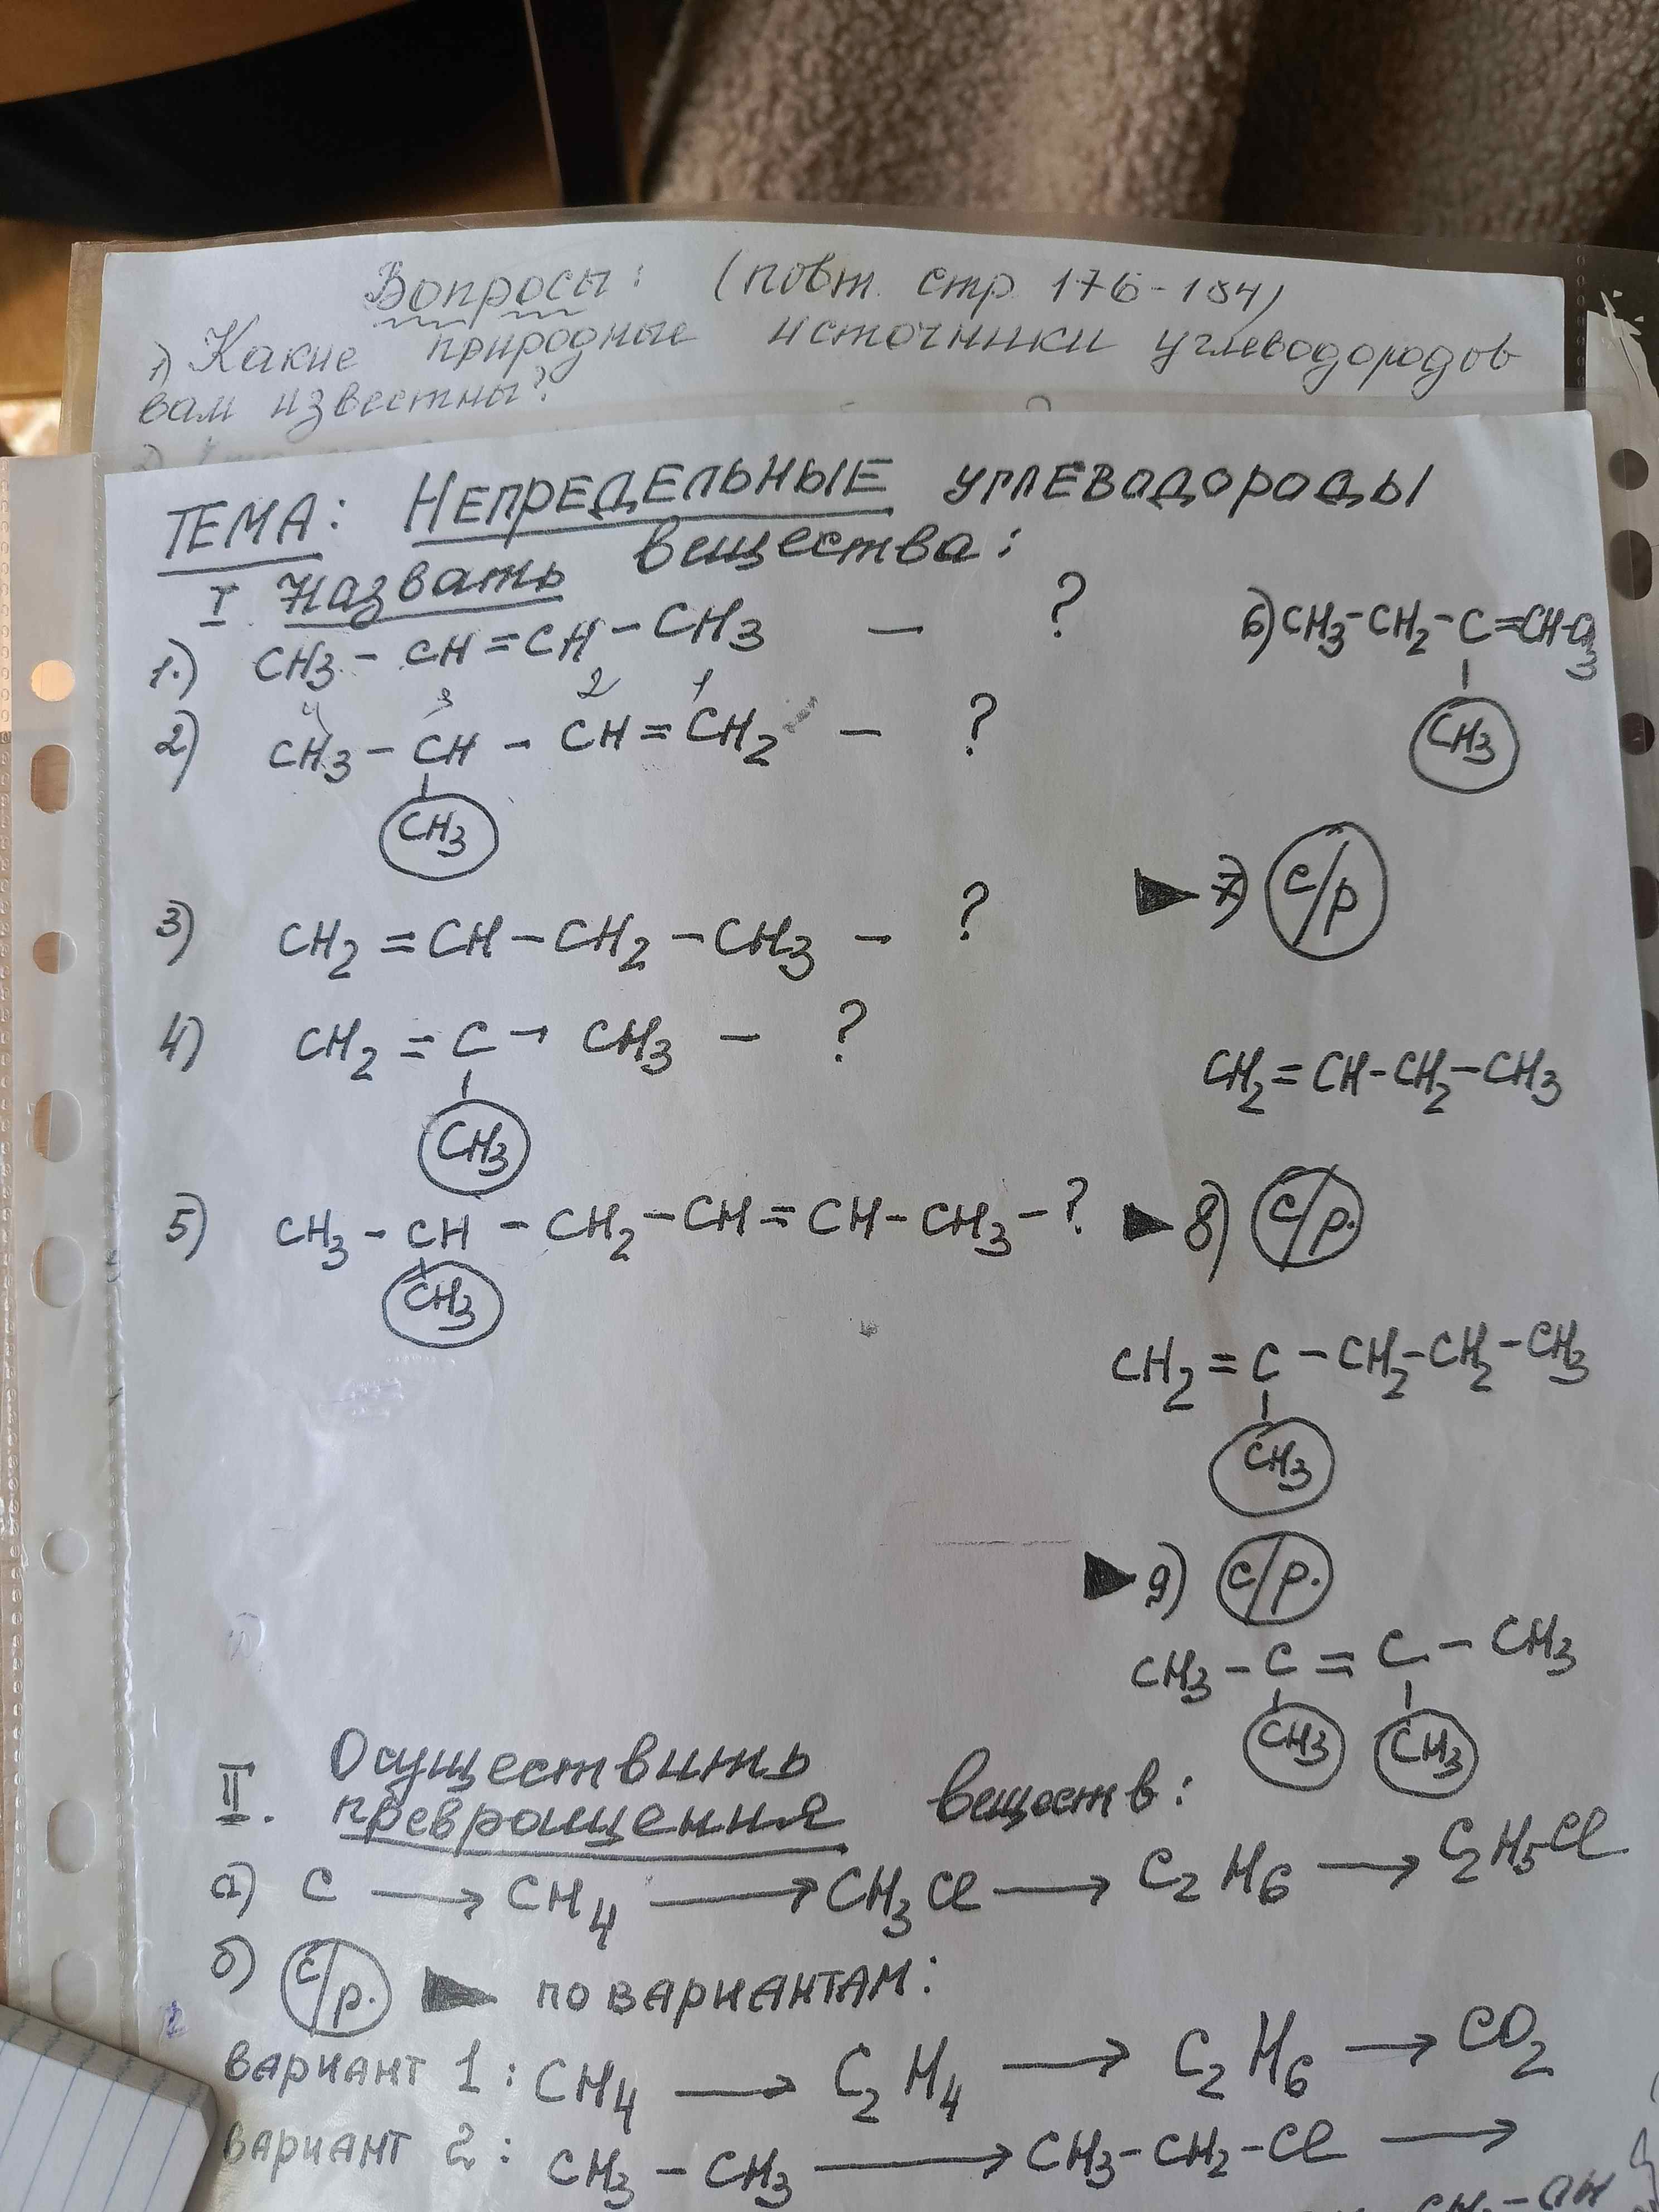 Вопросы: (повт. стр 176-184)
1) Какие природные источники углеводородов
вам известны?
2)
ТЕМА: НЕПРЕДЕЛЬНЫЕ УГЛЕВОДОРОДЫ
I. Назвать вещества:
1.) CH3 - CH = CH - CH3 — ?
4 3 2 1
2) CH3 - CH - CH = CH2 — ?
CH3
3) CH2 = CH - CH2 - CH3 — ?
4) CH2 = C - CH3 — ?
CH3
5) CH3 - CH - CH2 - CH = CH - CH3 - ?
CH3
6) CH3-CH2-C=CH-CH3
CH3
7) с/р
CH2=CH-CH2-CH3
8) с/р.
CH2 = C - CH2-CH2-CH3
CH3
9) с/р.
CH3 - C = C - CH3
CH3 CH3
II. Осуществить
превращения веществ:
а) C → CH4 → CH3Cl → C2H6 → C2H5Cl
б) с/р. ПО ВАРИАНТАМ:
ВАРИАНТ 1: CH4 → C2H4 → C2H6 → CO2
ВАРИАНТ 2: CH3 - CH3 → CH3-CH2-Cl →